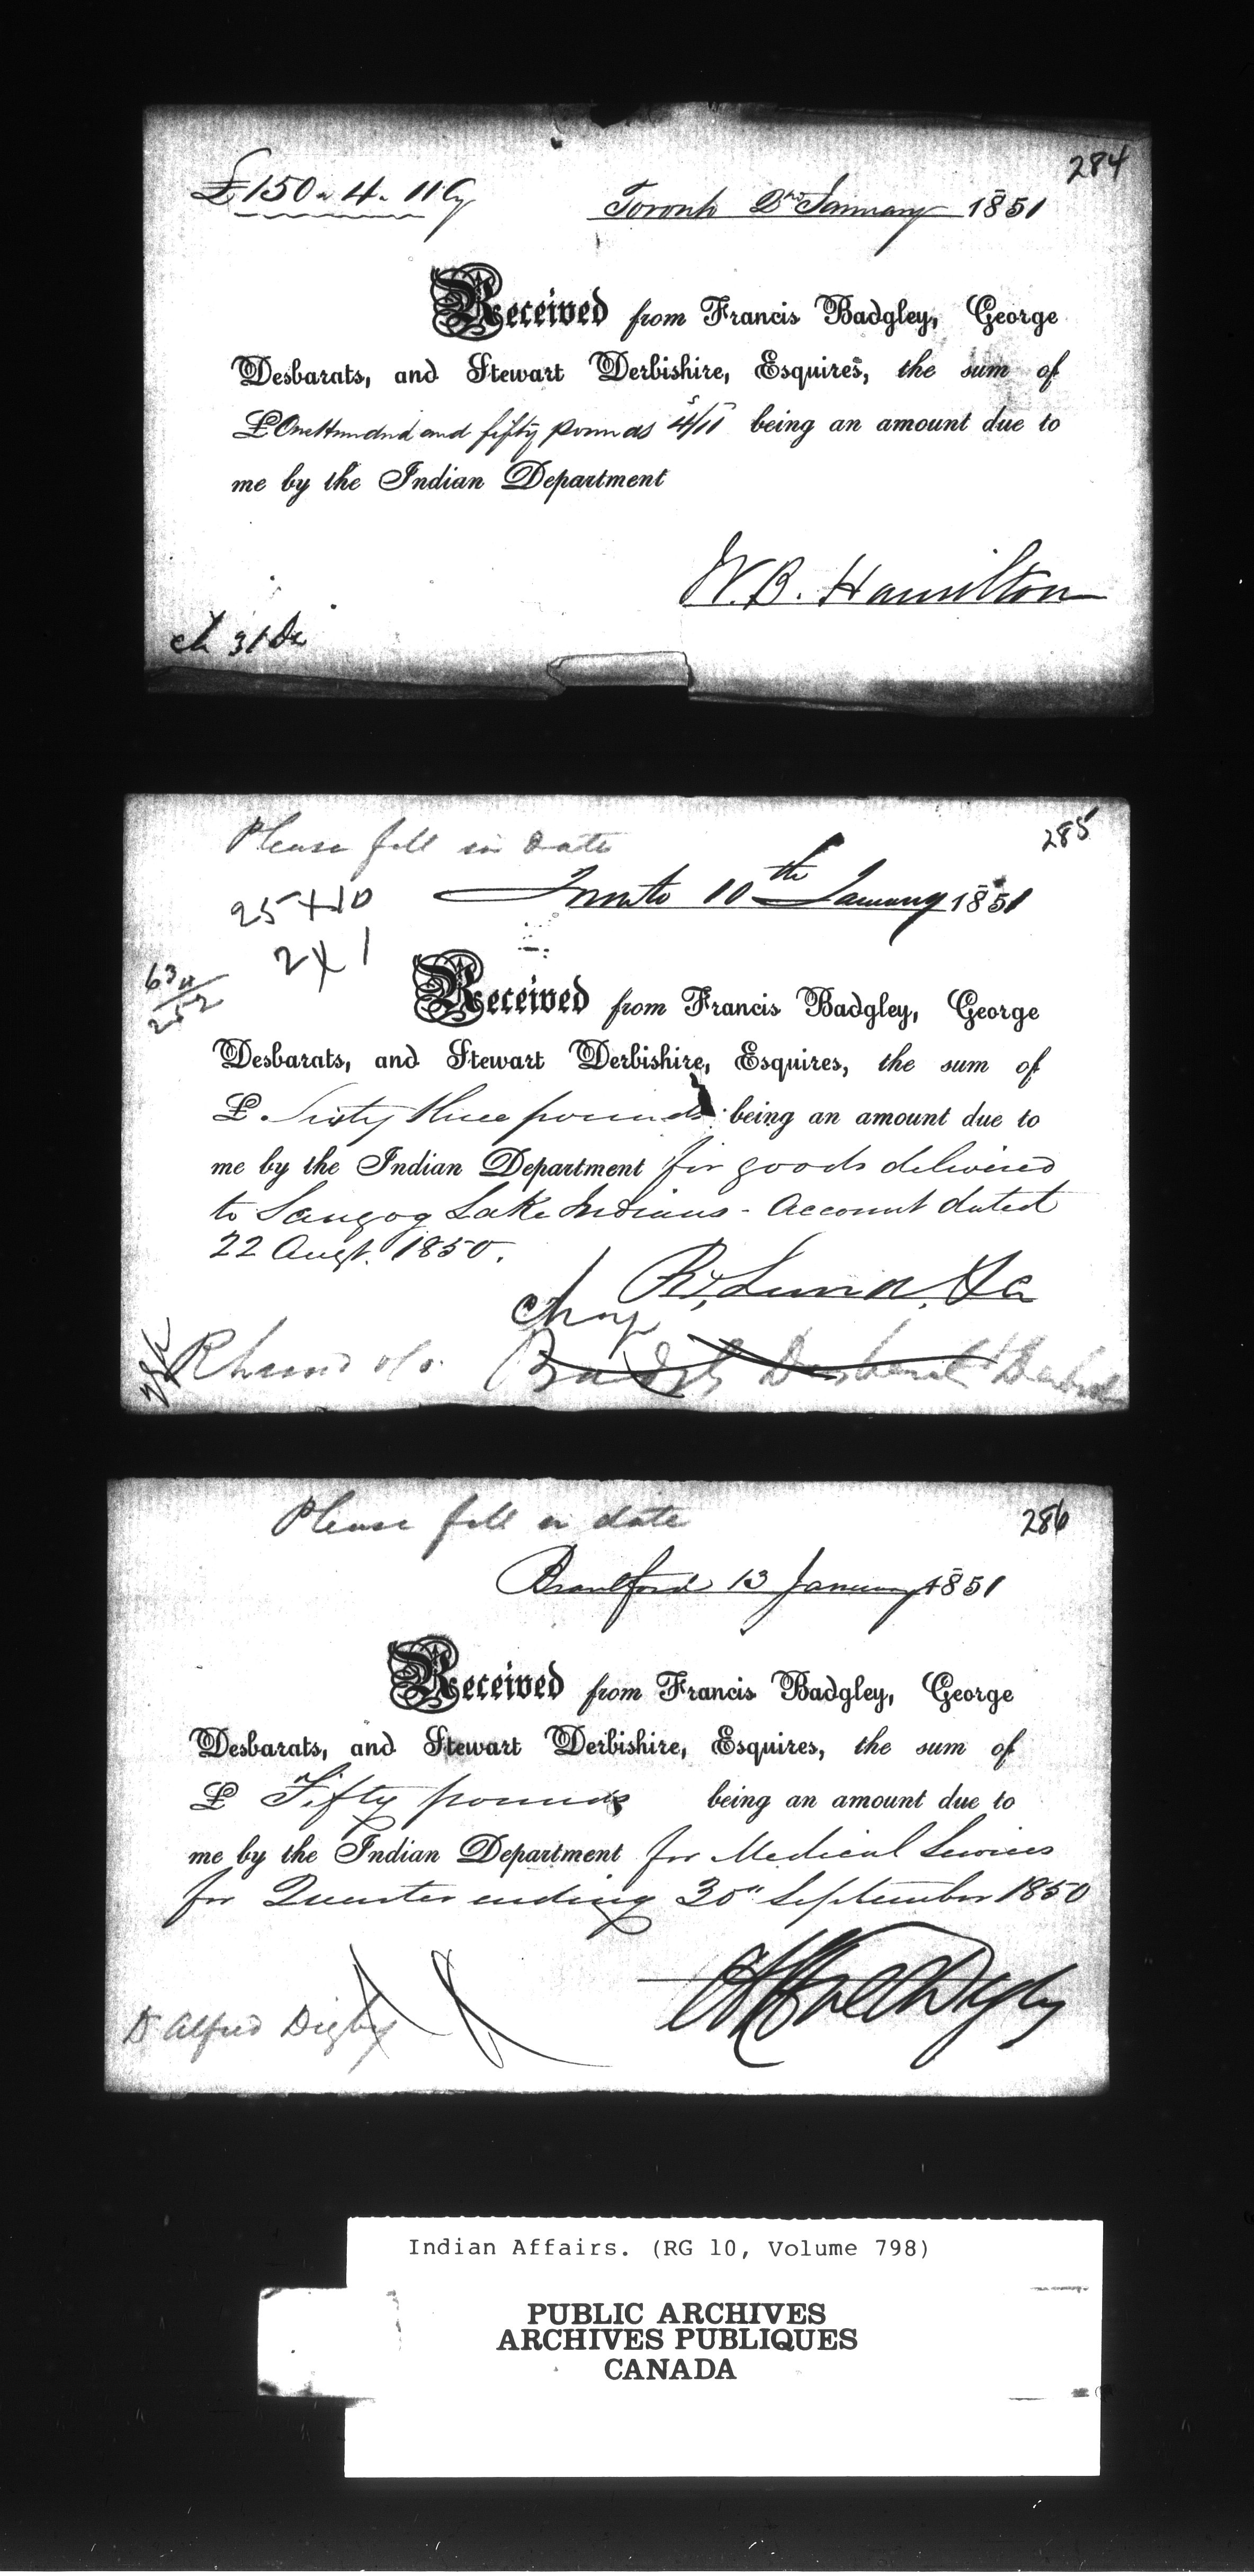 284
£150 . 4 . 11 Cy
Toronto 2nd January 1851
Received from Francis Badgley, George
Desbarats, and Stewart Derbishire, Esquires, the sum of
£ One Hundred and fifty pounds 4/11 being an amount due to
me by the Indian Department
W. B. Hamilton
285
Please fill in date
Toronto 10th January 1851
25 + 10
2 x 1
63
252
Received from Francis Badgley, George
Desbarats, and Stewart Derbishire, Esquires, the sum of
£ Sixty three pounds being an amount due to
me by the Indian Department for goods delivered
to Saugog Lake Indians - Account dated
22 Augt. 1850.
286
Please fill in date
Brantford 13 January 1851
Received from Francis Badgley, George
Desbarats, and Stewart Derbishire, Esquires, the sum of
£ Fifty pounds being an amount due to
me by the Indian Department for Medical Services
for Quarter ending 30" September 1850
Alfred Digby
Dr Alfred Digby
Indian Affairs. (RG 10, Volume 798)
PUBLIC ARCHIVES
ARCHIVES PUBLIQUES
CANADA